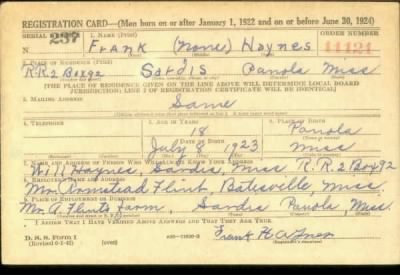 REGISTRATION CARD—(Men born on or after January 1, 1922 and on or before June 30, 1924)
SERIAL NUMBER 237 1. NAME (Print) ORDER NUMBER
Frank (None) Haynes 11121
2. PLACE OF RESIDENCE (Print)
R.R.2 Box 92 Sardis Panola Miss
[THE PLACE OF RESIDENCE GIVEN ON THE LINE ABOVE WILL DETERMINE LOCAL BOARD
JURISDICTION; LINE 2 OF REGISTRATION CERTIFICATE WILL BE IDENTICAL]
3. MAILING ADDRESS
Same
4. TELEPHONE 5. AGE IN YEARS 6. PLACE OF BIRTH
18 Panola
DATE OF BIRTH
July 8 1923 Miss
7. NAME AND ADDRESS OF PERSON WHO WILL ALWAYS KNOW YOUR ADDRESS
Will Haynes, Sardis, Miss R.R.2 Box 92
Mr. Armstead Flint, Batesville, Miss.
9. PLACE OF EMPLOYMENT OR BUSINESS
Mr. A. Flints farm, Sardis Panola, Miss.
I AFFIRM THAT I HAVE VERIFIED ABOVE ANSWERS AND THAT THEY ARE TRUE.
D. S. S. Form 1
(Revised 6-1-42) (over)
Frank Haynes